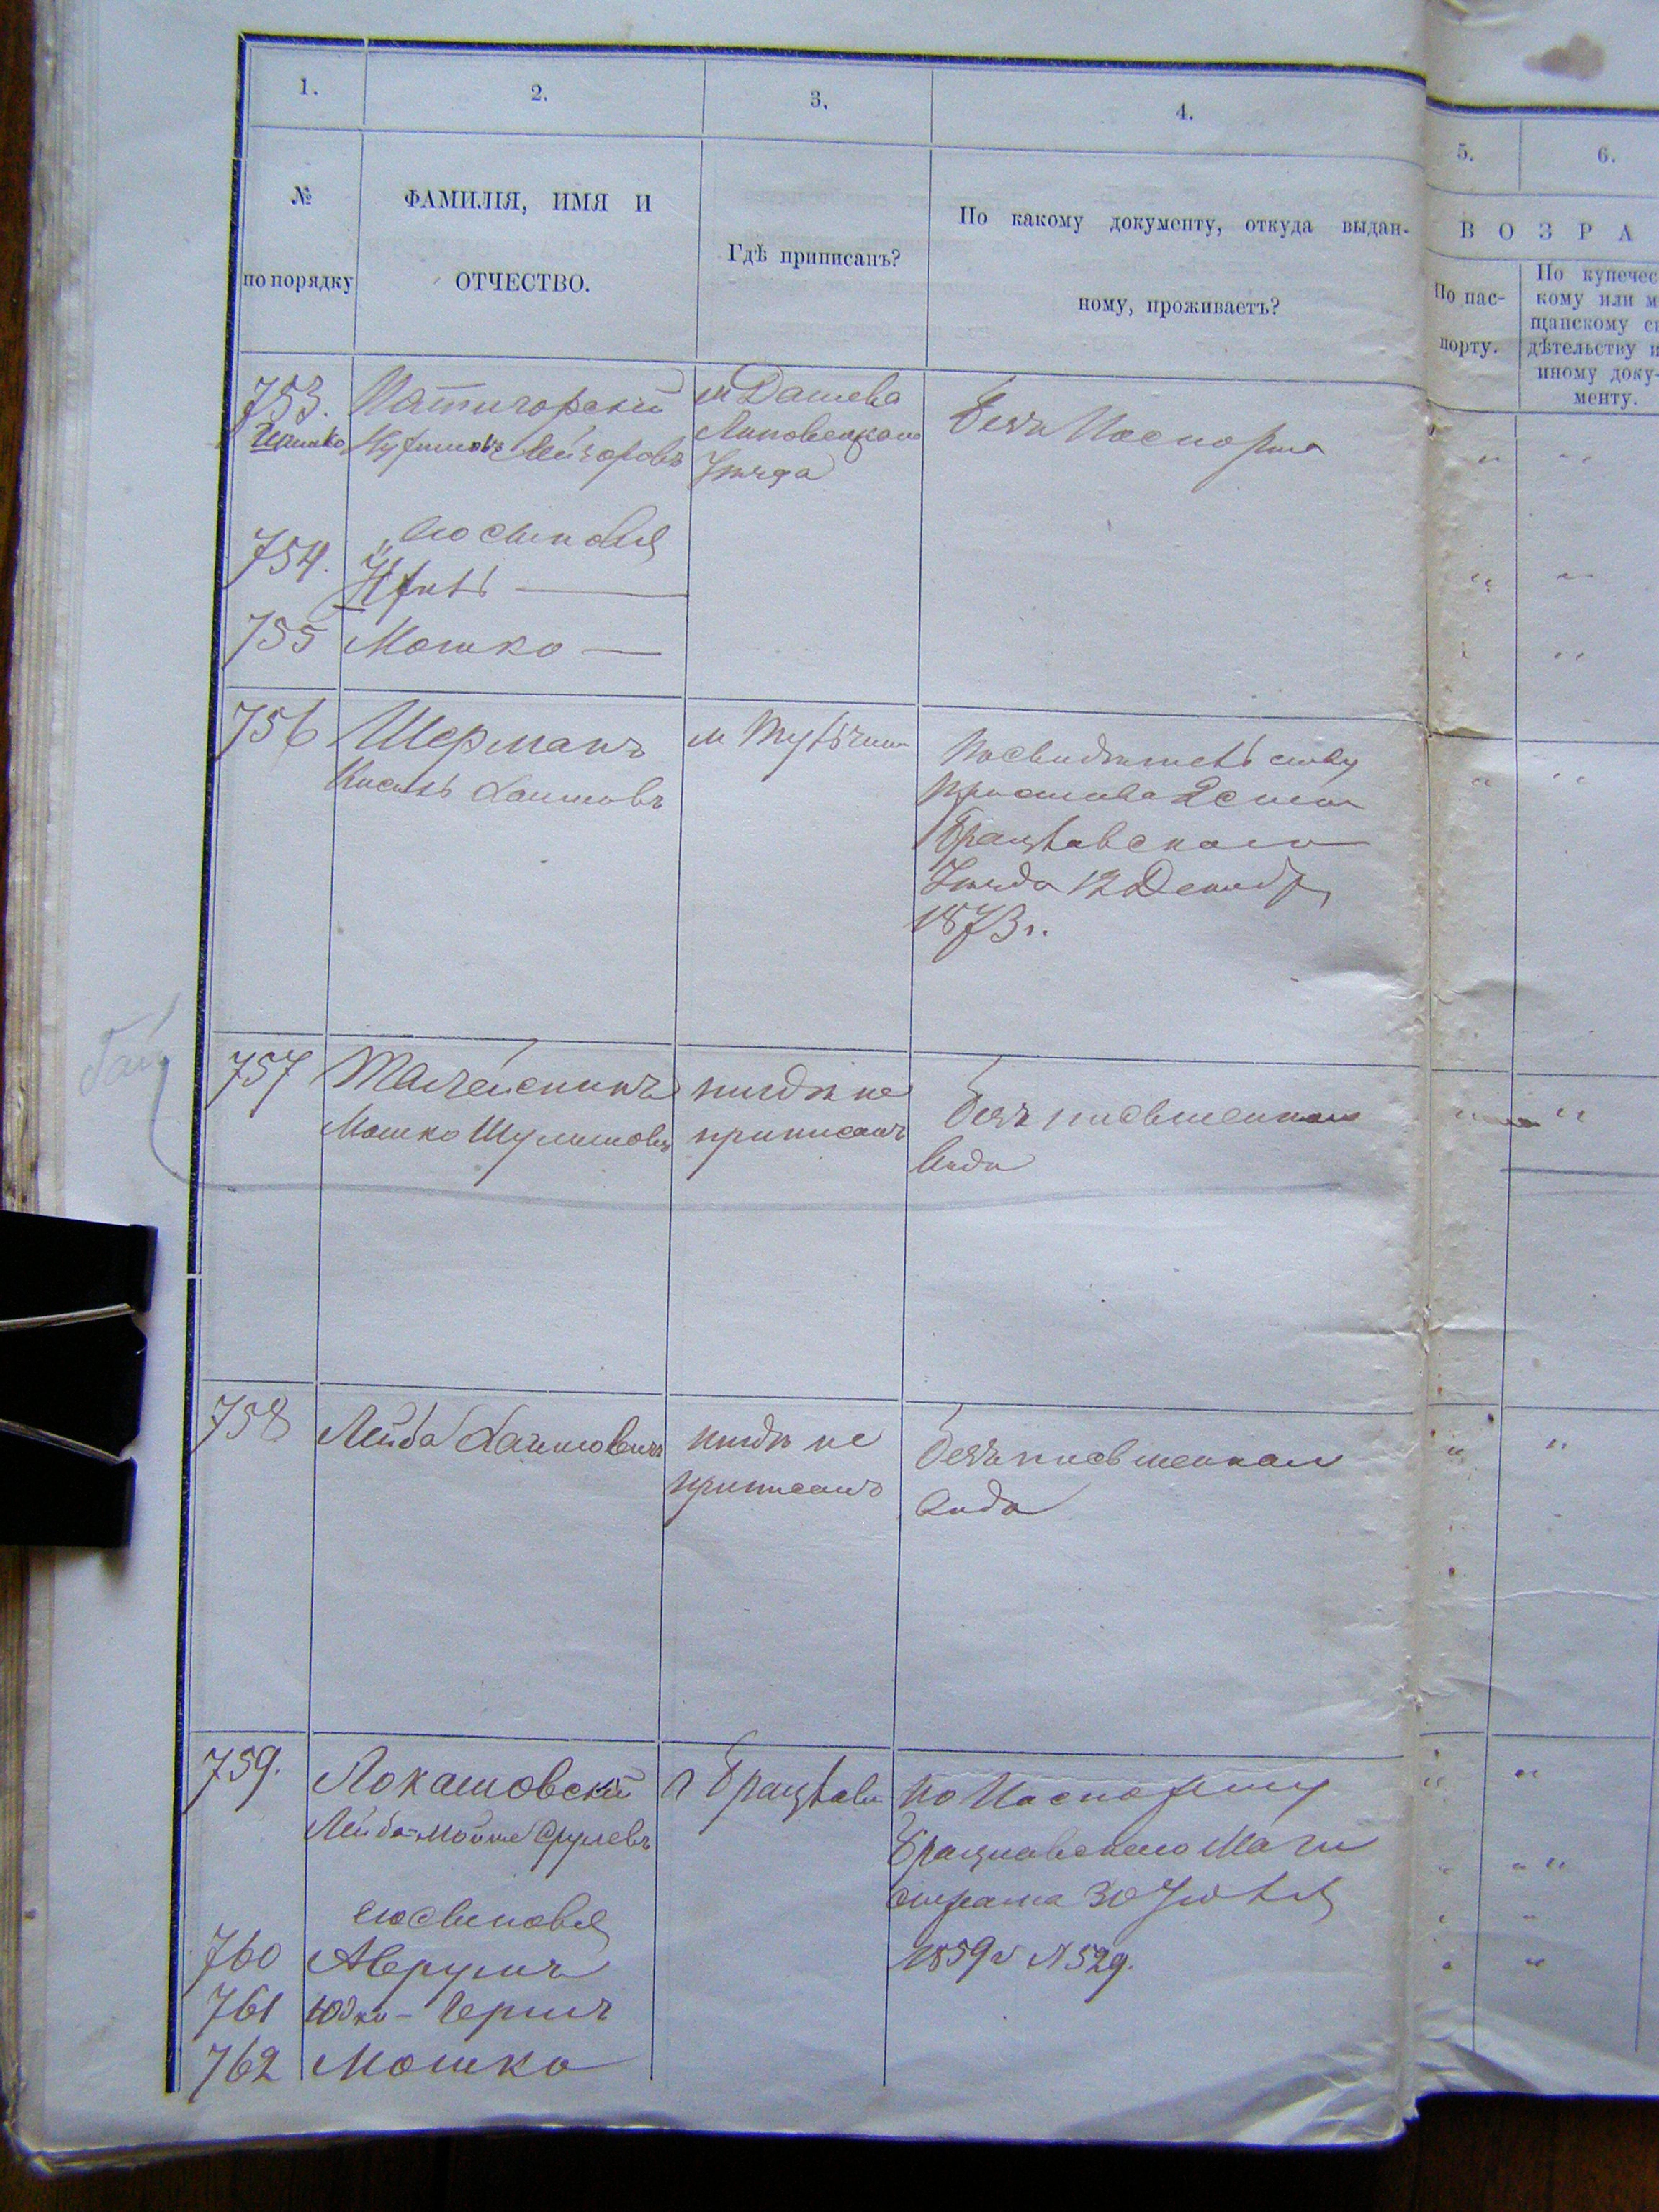 1.
2.
3.
4.
5.
6.
№
по порядку
ФАМИЛІЯ, ИМЯ И
ОТЧЕСТВО.
Гдѣ приписанъ?
По какому документу, откуда выдан-
ному, проживаетъ?
ВОЗРА
По пас-
порту.
По купечес
кому или м
щанскому св
дѣтельству и
иному доку-
менту.
753.
Пятигорскій
Лейзоровъ
м Дашева
Липовецкаго
Уѣзда
Безъ Паспорта
его сыновья
754.
755 Мошко —
756 Шерманъ
Кисель Хаимовъ
м Тульчин
По свидѣтельству
Пристава 2 стана
Брацлавскаго
Уѣзда 12 Декабря
1873 г.
757
Мошко Шулимовъ
нигдѣ не
приписанъ
безъ письменнаго
вида
758 Лейба Хаимовичъ
нигдѣ не
приписанъ
безъ письменнаго
вида
759. Локашовскій
Лейба-Мошко Срулевъ
г Брацлава
по Паспорту
Брацлавскаго Маги
страта 30 Іюля
1859 г № 529.
его сыновья
760 Аврумъ
761 Юдко-Гершъ
762 Мошко